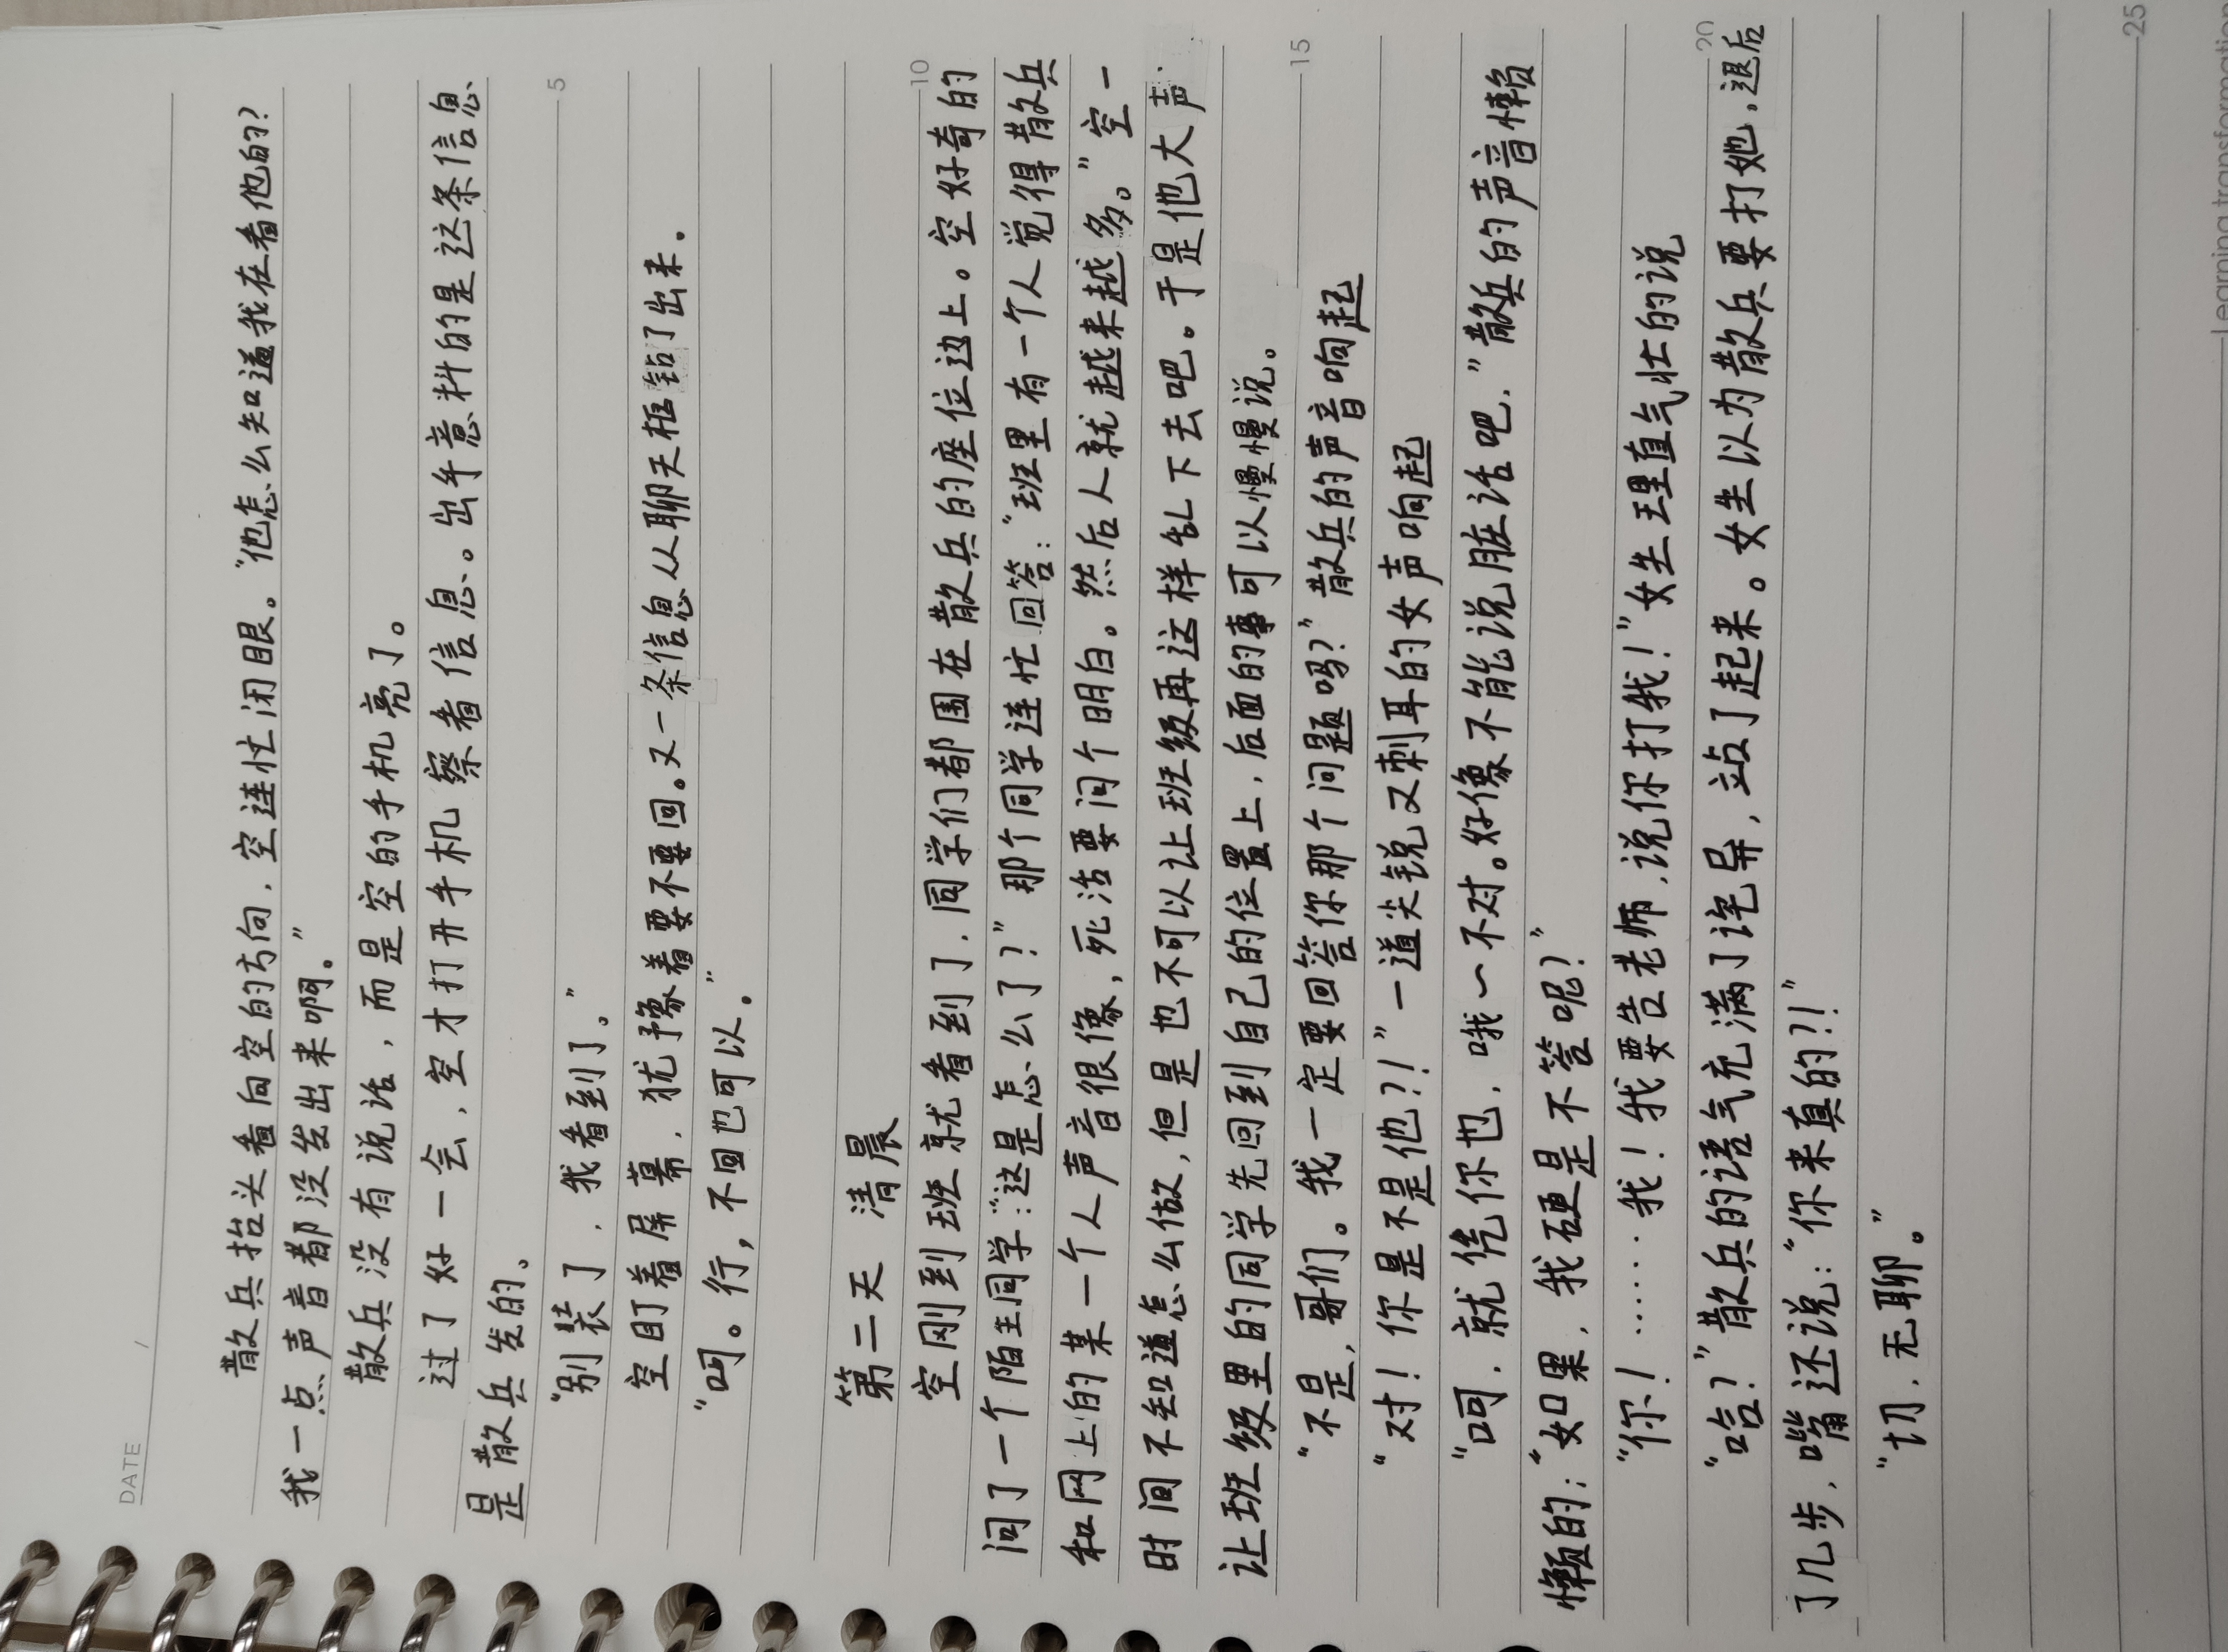 DATE /
散兵抬头看向空的方向，空连忙闭眼。“他怎么知道我在看他的?
我一点声音都没发出来啊。”
散兵没有说话，而是空的手机亮了。
过了好一会，空才打开手机察看信息。出乎意料的是这条信息
是散兵发的。
5
“别装了，我看到了。”
空盯着屏幕，犹予象着要不要回。又一条信息从聊天框钻了出来.
“呵。行，不回也可以.”
第二天 清晨
10
空刚到班就看到了，同学们都围在散兵的座位边上。空好奇的
问了一个陌生同学:“这是怎么了?”那个同学连忙回答:“班里有一个人觉得散兵
和网上的某一个人声音很像，死活要问个明白。然后人就越来越多。”空一
时间不知道怎么做，但是也不可以让班级再这样乱下去吧。于是他大声
让班级里的同学先回到自己的位置上，后面的事可以慢慢说。
15
“不是，哥们。我一定要回答你那个问题吗?”散兵的声音响起
“对!你是不是他?!”一道尖锐又刺耳的女声响起
“呵，就凭你也，哦~不对。好像不能说脏话吧.”散兵的声音懒
懒的:“如果，我硬是不答呢?”
“你!……我!我要告老师，说你打我!”女生理直气壮的说
20
“哈?”散兵的语气充满了诧异，站了起来。女生以为散兵要打她，退后
了几步，嘴还说:“你来真的?!”
“切，无聊。”
25
Learning transformation